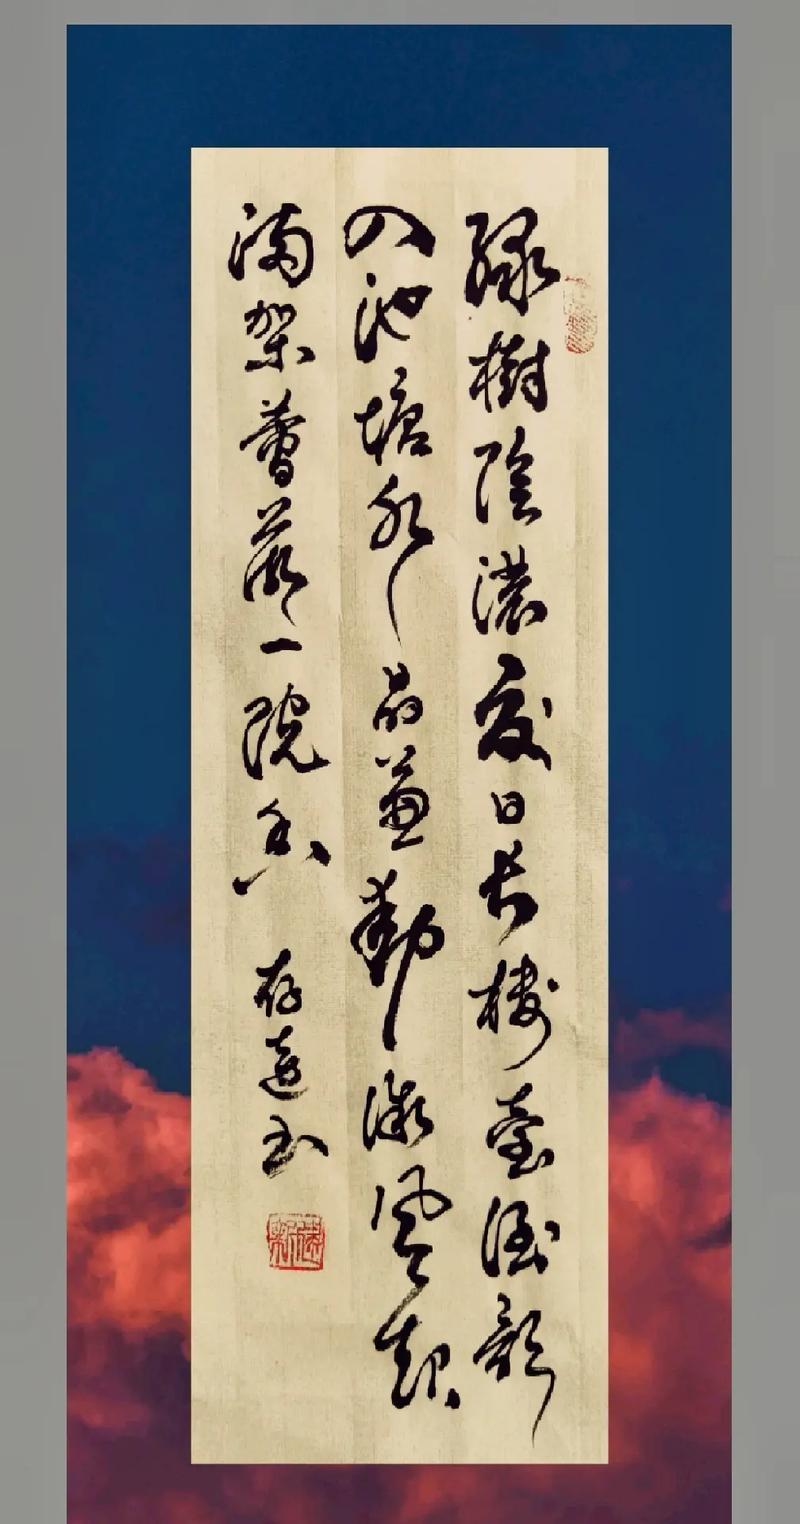 綠樹陰濃夏日長樓臺倒影
入池塘水晶簾動微風起
滿架薔薇一院香 存书